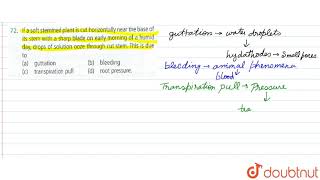 72. If a soft stemmed plant is cut horizontally near the base of
its stem with a sharp blade on early morning of a humid
day, drops of solution ooze through cut stem. This is due
to
(a) guttation (b) bleeding
(c) transpiration pull (d) root pressure.
guttation → water droplets
hydathodes → Small pores
bleeding → animal phenomena
blood
Transpiration pull → Pressure
tra
doubtnut